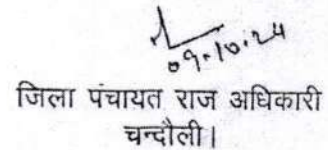 09.10.24
जिला पंचायत राज अधिकारी
चन्दौली।